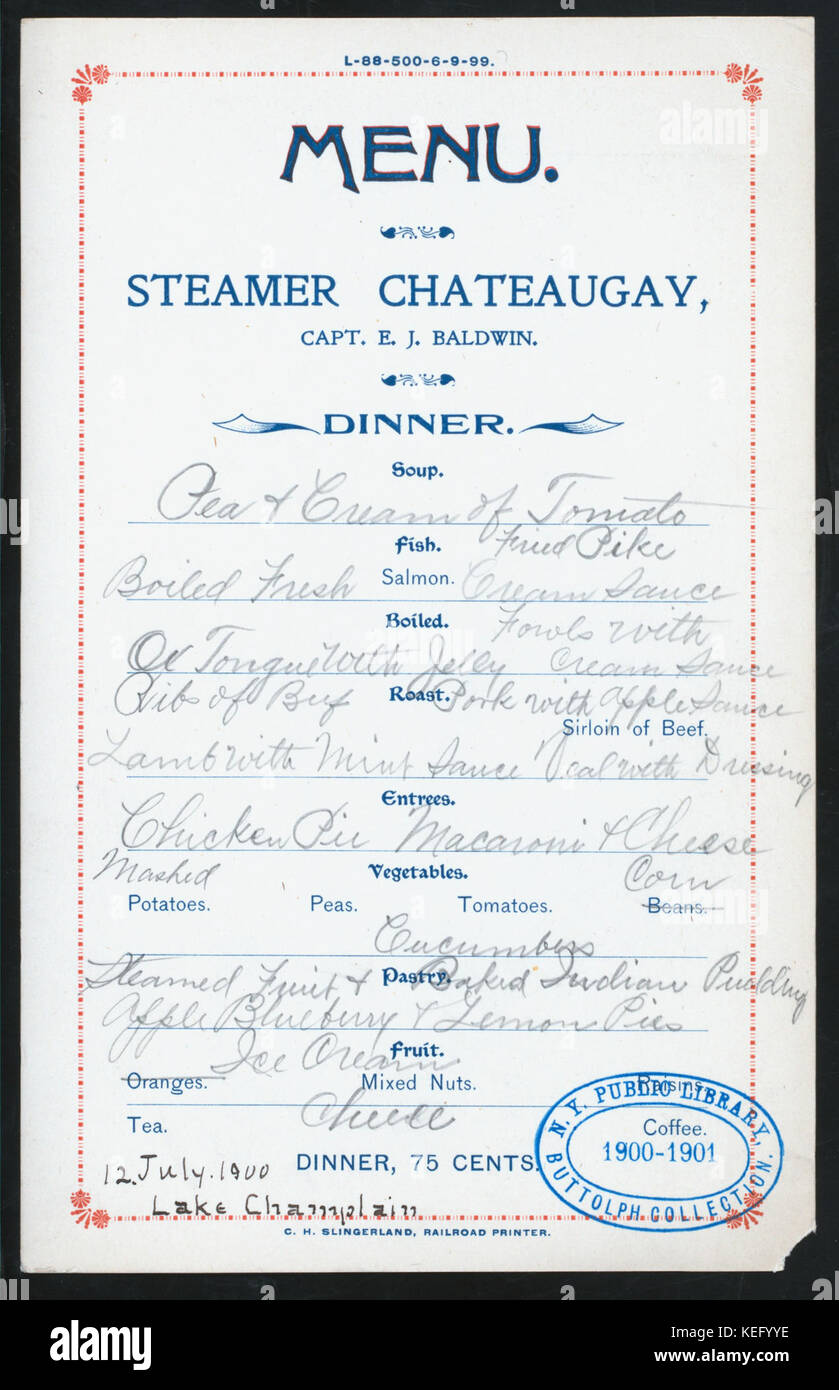 L-88-500-6-9-99.
MENU.
STEAMER CHATEAUGAY,
CAPT. E. J. BALDWIN.
DINNER.
Soup.
Pea & Cream of Tomato
Fish. Fried Pike
Boiled Fresh Salmon. Cream Sauce
Boiled. Fowls with
Ox Tongue with Jelly Cream Sauce
Ribs of Beef Roast. Pork with Apple Sauce
Sirloin of Beef.
Lamb with Mint Sauce Veal with Dressing
Entrees.
Chicken Pie Macaroni & Cheese
Mashed Vegetables. Corn
Potatoes. Peas. Tomatoes. Beans.
Cucumbers
Steamed Fruit & Pastry. Baked Indian Pudding
Apple Blueberry & Lemon Pies
Ice Cream Fruit.
Oranges. Mixed Nuts. Raisins.
Tea. Cheese Coffee.
DINNER, 75 CENTS.
12. July. 1900
Lake Champlain
N. Y. PUBLIC LIBRARY,
1900-1901
BUTTOLPH COLLECTION.
C. H. SLINGERLAND, RAILROAD PRINTER.
alamy
Image ID: KEFYYE
www.alamy.com